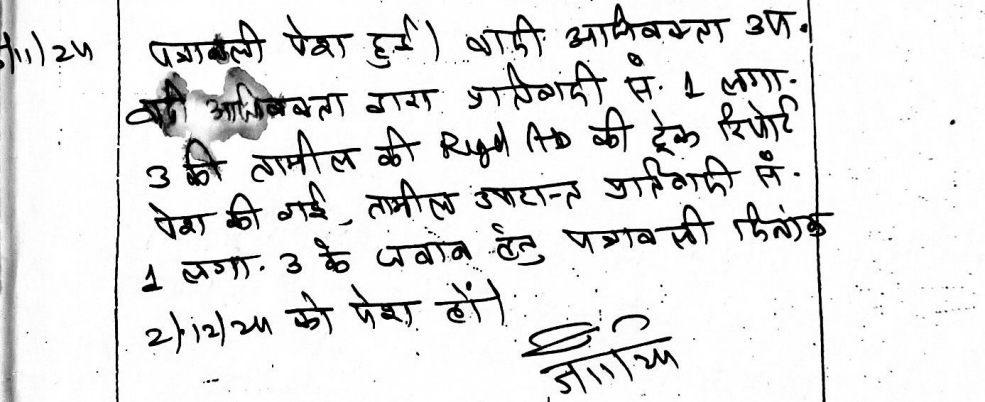 पत्रावली पेश हुई। वादी अधिवक्ता उप.
वादी अधिवक्ता द्वारा प्रतिवादी सं. 1 लगा.
3 की तामील की Regd AD की ट्रेक रिपोर्ट
पेश की गई, तामील उपरान्त प्रतिवादी सं.
1 लगा. 3 के जवाब हेतु पत्रावली दिनांक
2/12/24 को पेश हों।